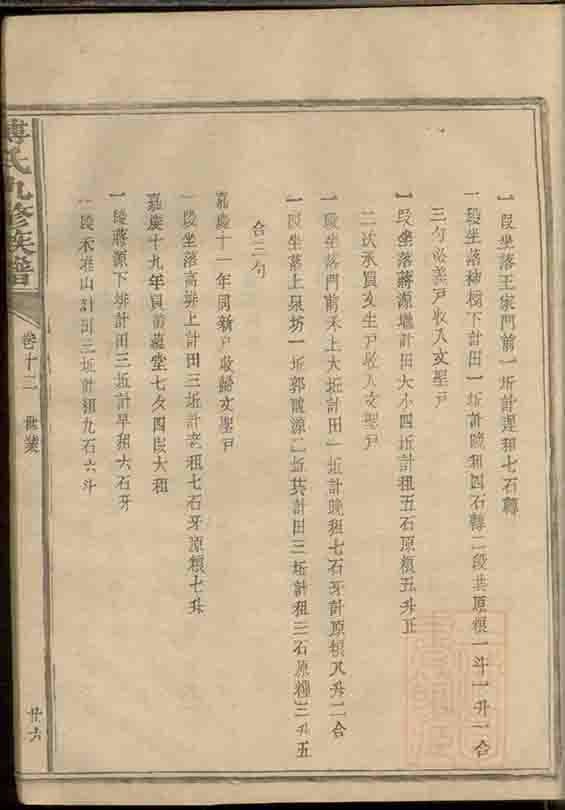 一段坐落王家門前一坵計遲租七石
一段坐落柿樹下計田一坵計晚租四石二段共原粮一斗一升一合
三勺必羙戸收入文聖戸
一段坐落蔣源壠計田大小四坵計租五石原粮五升正
二次承買文生戸收入文聖戸
一段坐落門前禾上大坵計田一坵計晚租七石牙計原粮八升二合
一段坐落上泉坊一坵郭家源二坵共計田三坵計租三石原糧三升五
合三勺
嘉慶十一年周新戸收歸文聖戸
一段坐落高排上計田三坵計老租七石牙原糧七升
嘉慶十九年買黃蘊堂七夕四叚大租
一段蔣源下排計田三坵計早租六石牙
一段禾堆山計田三坵計租九石六斗
傅氏九修族譜
卷十二 世業
廿六